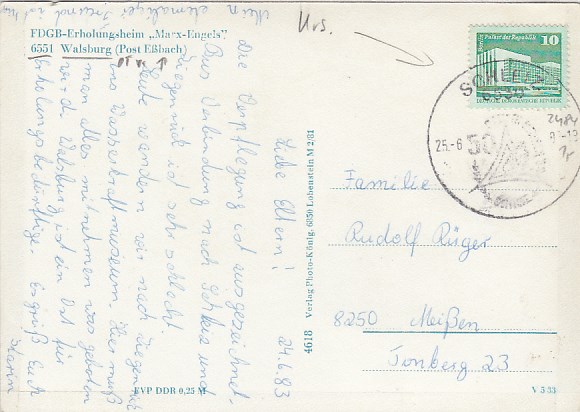 Mein ehemaliger Freund ist hier
Urs.
FDGB-Erholungsheim „Marx-Engels"
6551 Walsburg (Post Eßbach)
Liebe Eltern! 24.6.83
Die Verpflegung ist ausgezeichnet.
Bus Verbindung nach Schleiz und
Ziegenrück ist sehr schlecht.
Heute wandern wir nach Ziegenrück
ins Wasserkraftmuseum. Hier muß
man alles mitnehmen was geboten
wird. Walsburg ist ein Ort für
Erholungsbedürftige. Es grüßt Euch
Karin
EVP DDR 0,25 M
4618 Verlag Photo-König, 6850 Lobenstein M 2/81
Palast der Republik 10
DEUTSCHE DEMOKRATISCHE REPUBLIK
SCHLEIZ
6550
25.-6
50
Familie
Rudolf Rüger
8250 Meißen
Jonberg 23
V 5 33